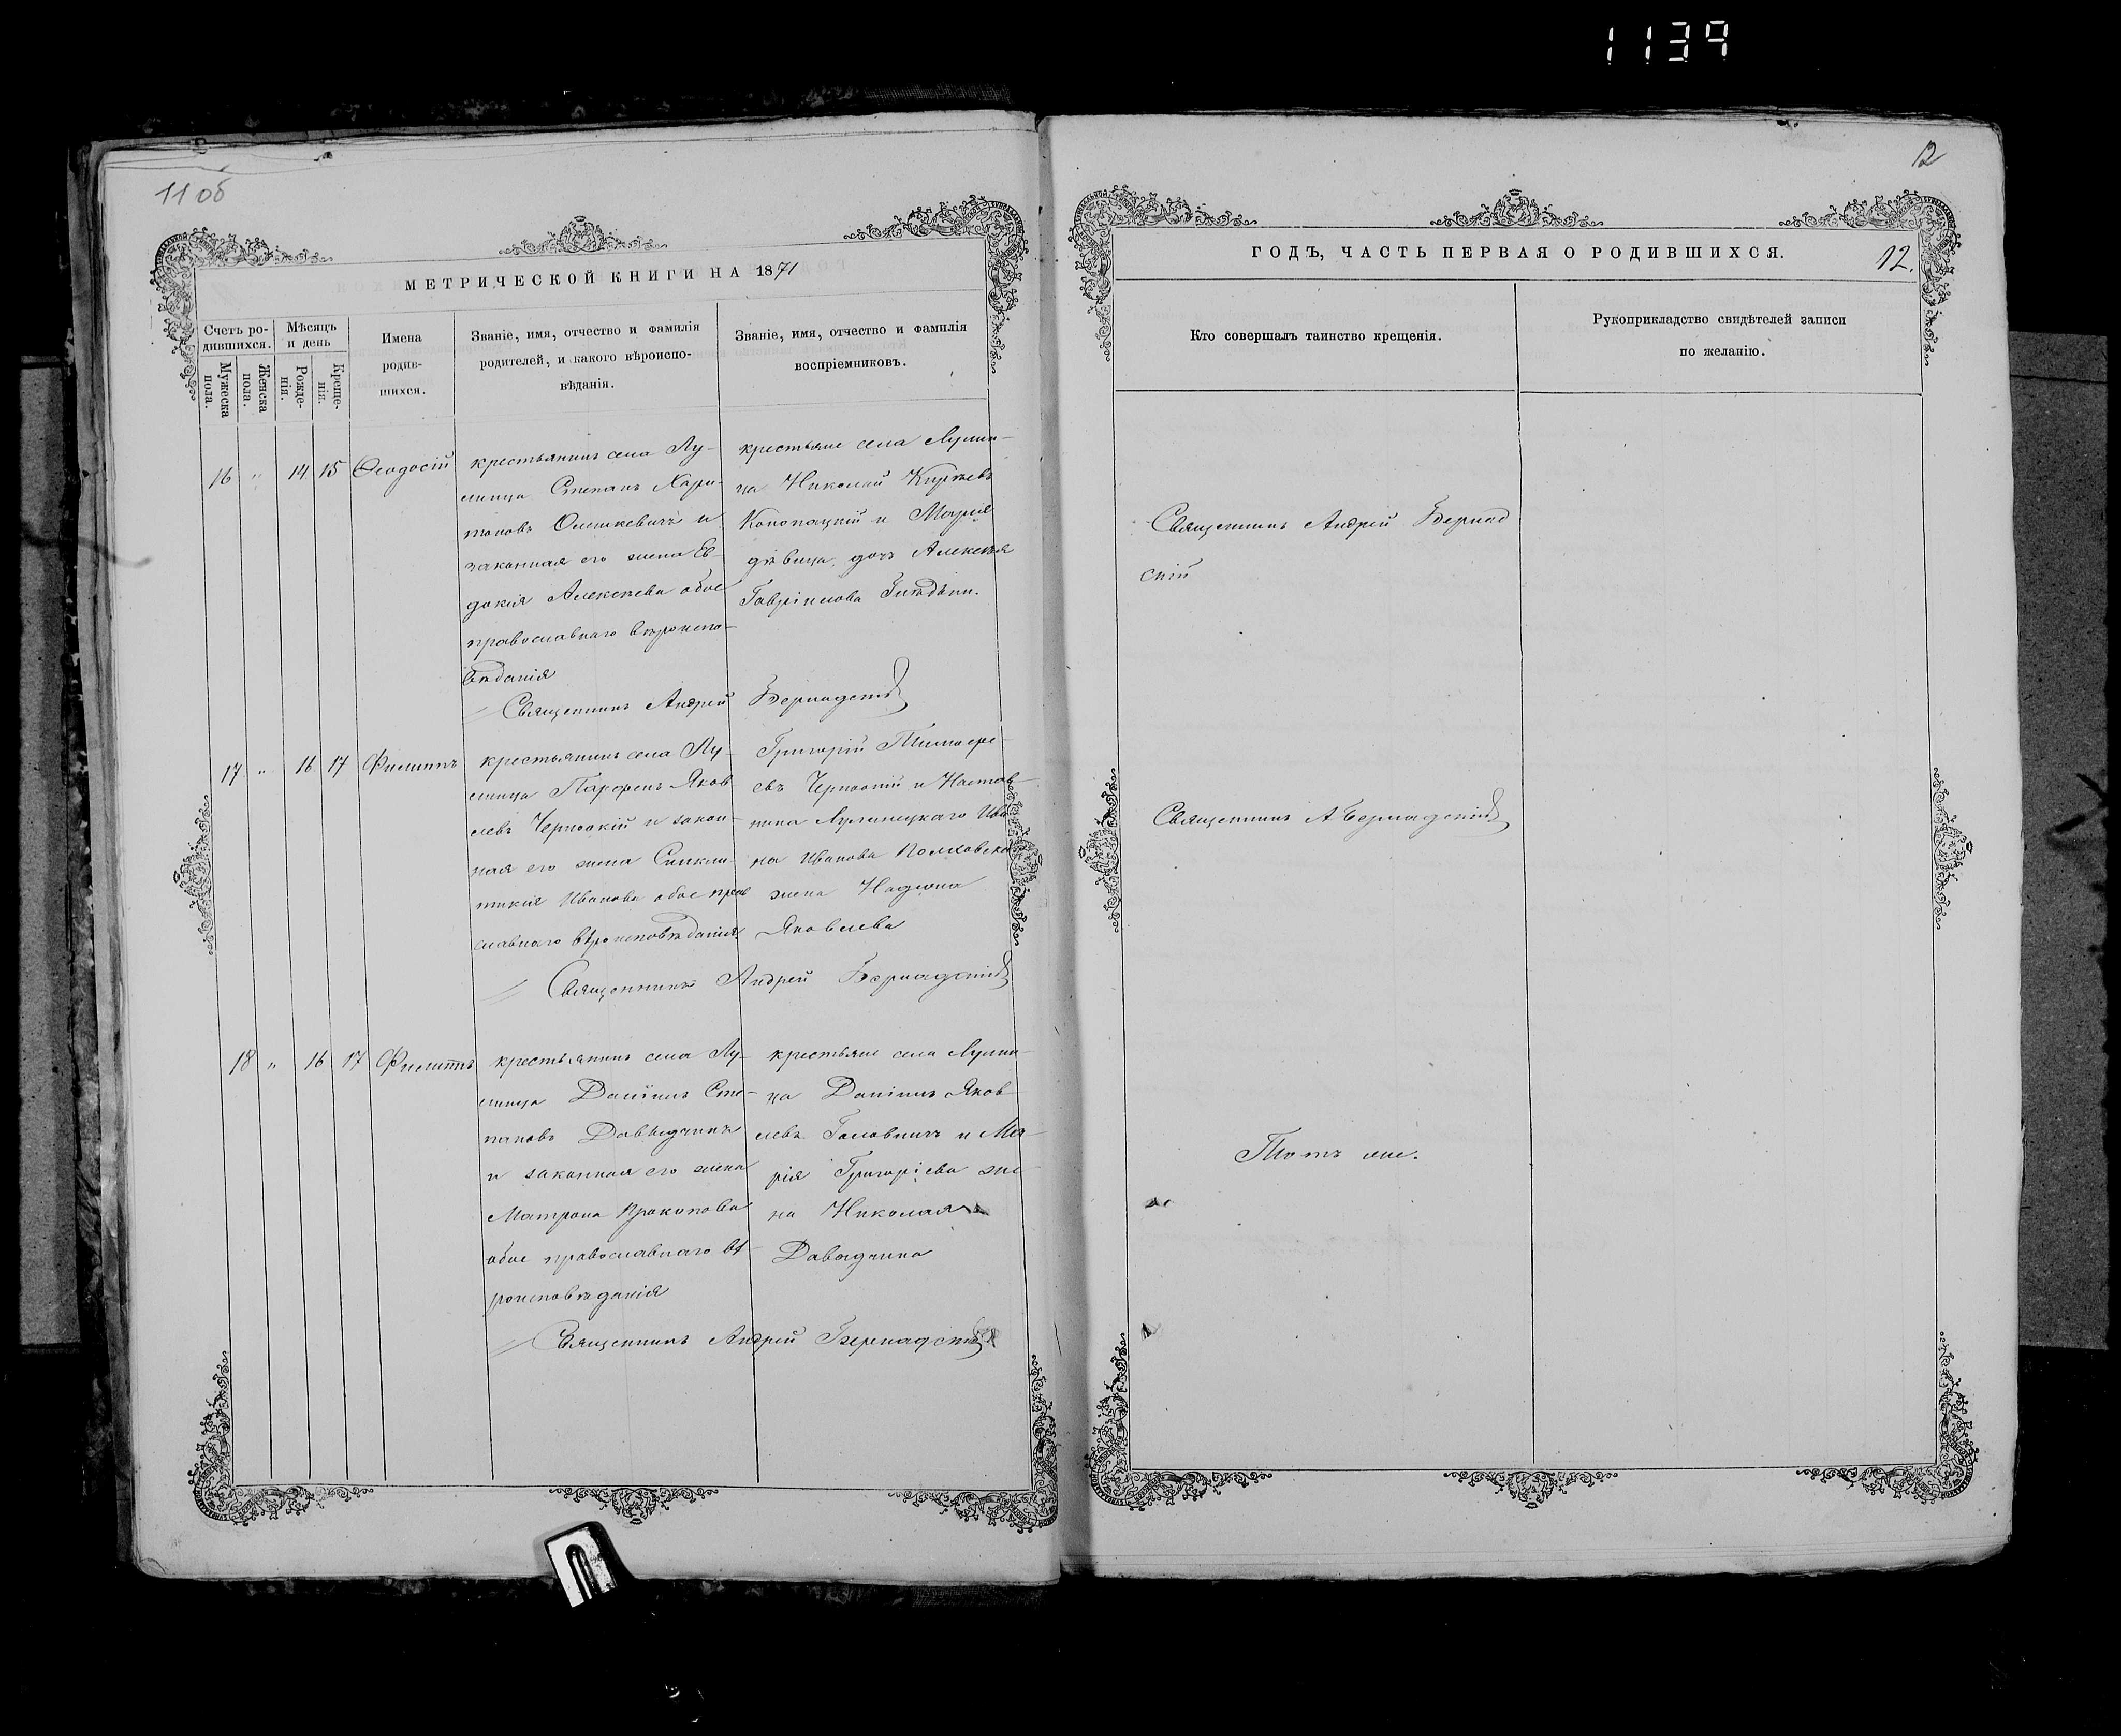 1139
11 об
МЕТРИЧЕСКОЙ КНИГИ НА 1871
Счетъ ро-
дившихся.
Мужеска
пола.
Женска
пола.
Мѣсяцъ
и день
Рожде-
нія.
Креще-
нія.
Имена
родив-
шихся.
Званіе, имя, отчество и фамилія
родителей, и какого вѣроиспо-
вѣданія.
Званіе, имя, отчество и фамилія
воспріемниковъ.
16 " 14 15 Ѳеодосій
крестьянинъ села Лу-
линца Степанъ Хари-
тоновъ Олешкевичъ и
законная его жена Ев-
докія Алексѣева обое
православнаго вѣроиспо-
вѣданія
крестьяне села Лулин-
ца Николай
Конопацкій и Марія
дѣвица дочь Алексѣя
Гавріилова
Священникъ Андрей Бернадскій
17 " 16 17 Филиппъ
крестьянинъ села Лу-
линца Парфенъ Яков
левъ Черноокій и закон-
ная его жена Синкли-
тикія Иванова обое право
славнаго вѣроисповѣданія
Григорій Тимофе-
евъ Черноокій и Настав-
ника Лулинецкаго Ива
на Иванова
жена
Яковлева
Священникъ Андрей Бернадскій
18 " 16 17 Филиппъ
крестьянинъ села Лу-
линца Даніилъ Сте-
пановъ Давыдчикъ
и законная его жена
Матрона Прокопова
обое православнаго вѣ-
роисповѣданія
крестьяне села Лулин-
ца Даніилъ Яков
левъ Головничъ и Ма-
рія Григоріева же
на Николая
Давыдчика
Священникъ Андрей Бернадскій
12
ГОДЪ, ЧАСТЬ ПЕРВАЯ О РОДИВШИХСЯ.
12.
Кто совершалъ таинство крещенія.
Рукоприкладство свидѣтелей записи
по желанію.
Священникъ Андрей Бернад
скій
Священникъ А Бернадскій
Тотъ же.